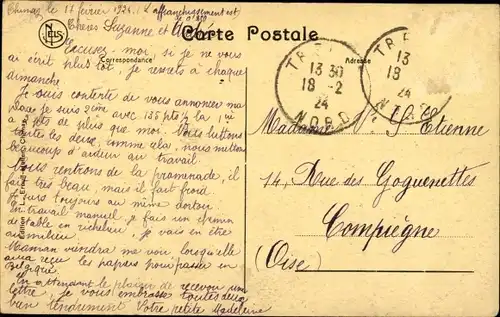 Chimay, le 17 février 1924. L'affranchissement est
Chères Suzanne et
Carte Postale
Correspondance
Adresse
Excusez-moi, si je ne vous
ai écrit plus tôt, je restets à chaque
dimanche.
Je suis contente de vous annoncer ma
place je suis 2ième avec 135 pts ½ la 1ère
a pts de plus que moi. Nous luttons
toutes les deux, comme cela, nous mettons
beaucoup d'ardeur au travail.
Nous rentrons de la promenade, il
fait très beau, mais il fait froid.
Je suis toujours au même dortoir.
En travail manuel, je fais un chemin
de table en richelieu, je vais en être
au milieu.
Maman viendra me voir lorsqu'elle
aura reçu les papiers pour passer en
Belgique.
En attendant le plaisir de recevoir une
lettre, je vous embrasse toutes deux
bien tendrement. Votre petite Madeleine
TRE
13 30
18-2
24
NORD
TRE
13
18
24
NORD
Madame V. S. Etienne
14, Rue des Goguenettes
Compiègne
(Oise)